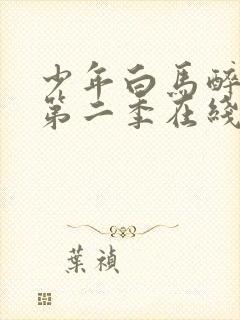 少年白馬醉
第二季在綫
葉禎